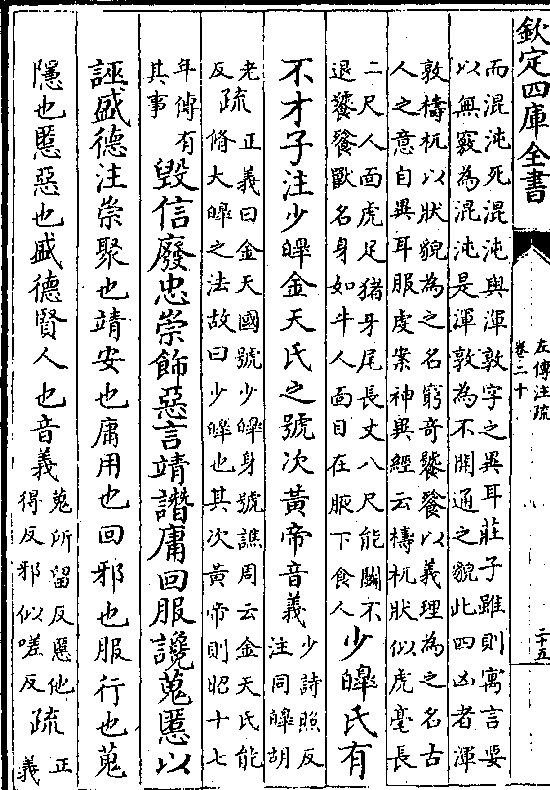 欽定四庫全書
左傳注疏
卷二十
二十五
而混沌死混沌與渾敦字之異耳莊子雖則寓言要
以無竅為混沌是渾敦為不開通之貌此四凶者渾
敦檮杌以狀貌為之名窮奇饕餮以義理為之名古
人之意自異耳服虔案神異經云檮杌狀似虎毫長
二尺人面虎足猪牙尾長丈八尺能鬭不
退饕餮獸名身如牛人面目在腋下食人
少皥氏有
不才子注少皥金天氏之號次黃帝音義
少詩照反
注同皥胡
老
反
疏
正義曰金天國號少皥身號譙周云金天氏能
脩大皥之法故曰少皥也其次黃帝則昭十七
年傳有
其事
毀信廢忠崇飾惡言靖譖庸回服讒蒐慝以
誣盛德注崇聚也靖安也庸用也回邪也服行也蒐
隱也慝惡也盛德賢人也音義
蒐所留反慝他
得反邪似嗟反
疏
正
義